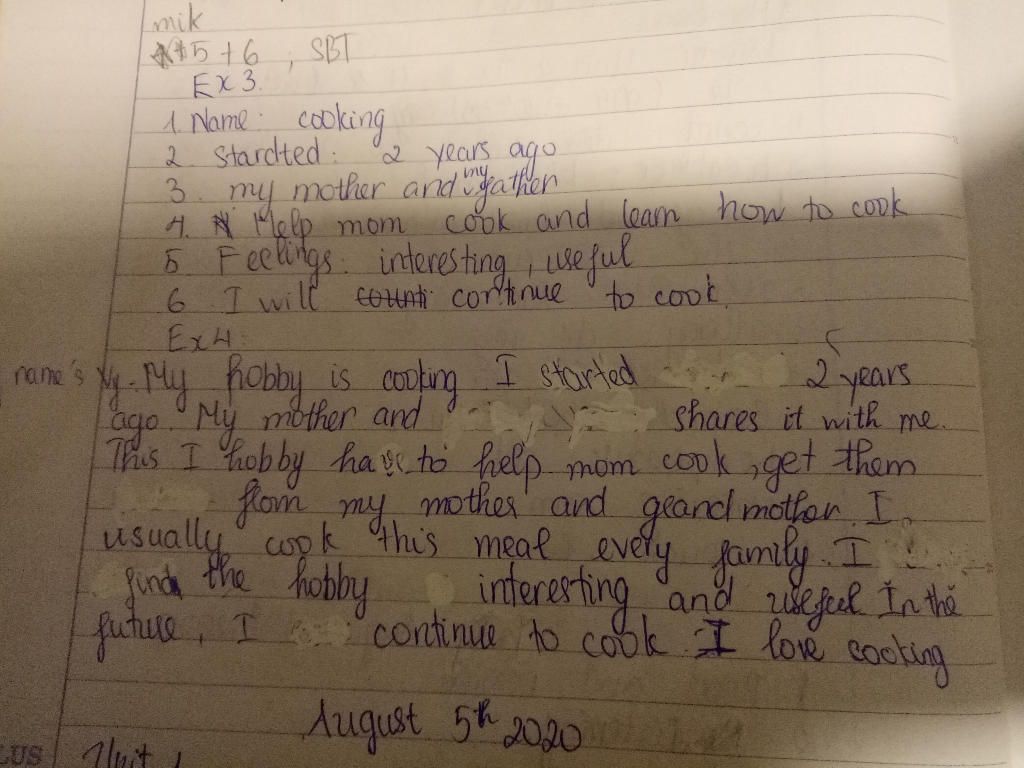 mik
5 + 6, SBT
Ex 3.
1. Name: cooking
2. Stardted: 2 years ago
3. my mother and my father
4. Help mom cook and learn how to cook
5 Feelings: interesting, useful
6. I will continue to cook.
Ex 4:
name's My - My hobby is cooking I started 2 years
ago. My mother and shares it with me.
This I hobby have to help mom cook, get them
from my mother and geandmother. I
usually cook this meal every family. I
find the hobby interesting and useful In the
future, I continue to cook. I love cooking
August 5th 2020
LUS Unit 1